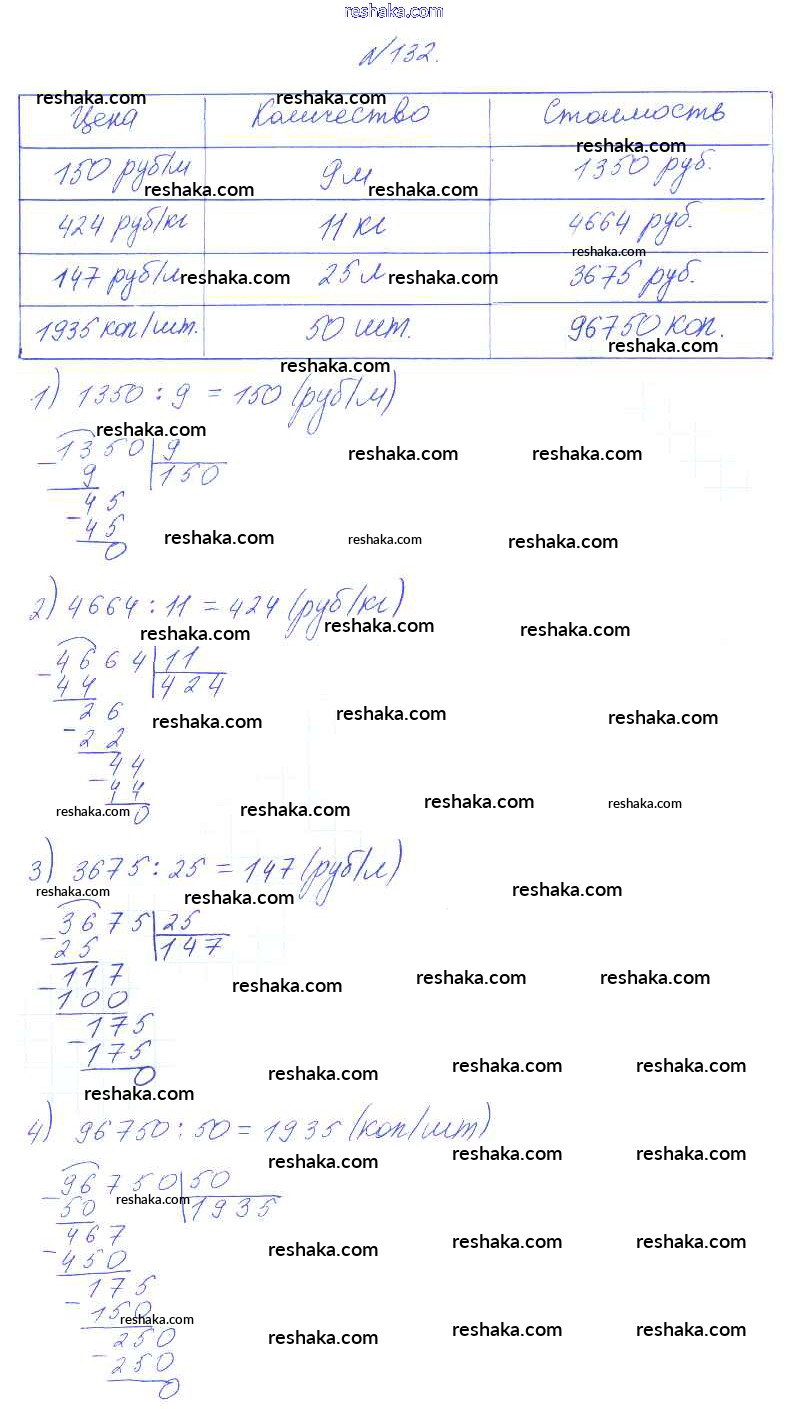 reshaka.com
№132.
reshaka.com reshaka.com
Цена Количество Стоимость
reshaka.com
150 руб/м 9м 1350 руб.
reshaka.com reshaka.com
424 руб/кг 11 кг 4664 руб.
reshaka.com
147 руб/л 25 л 3675 руб.
reshaka.com reshaka.com
1935 коп/шт. 50 шт. 96750 коп.
reshaka.com
reshaka.com
1) 1350 : 9 = 150 (руб/м)
reshaka.com
1350 9
reshaka.com reshaka.com
- 9 150
45
- 45
reshaka.com reshaka.com reshaka.com
0
2) 4664 : 11 = 424 (руб/кг)
reshaka.com reshaka.com reshaka.com
4664 11
- 44 424
26
reshaka.com reshaka.com reshaka.com
- 22
44
- 44
reshaka.com reshaka.com reshaka.com reshaka.com
0
3) 3675 : 25 = 147 (руб/л)
reshaka.com reshaka.com reshaka.com
3675 25
- 25 147
117
reshaka.com reshaka.com reshaka.com
- 100
175
- 175
reshaka.com reshaka.com reshaka.com
0
reshaka.com
4) 96750 : 50 = 1935 (коп/шт)
reshaka.com reshaka.com reshaka.com
96750 50
reshaka.com
- 50 1935
467
reshaka.com reshaka.com reshaka.com
- 450
175
- 150
reshaka.com
250
reshaka.com reshaka.com reshaka.com
- 250
0